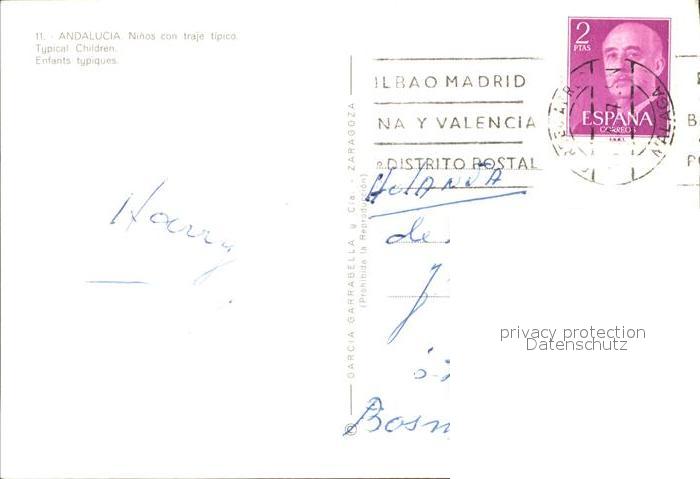 11. - ANDALUCIA. Niños con traje típico.
Typical Children.
Enfants typiques.
GARCIA GARRABELLA y Cía.- ZARAGOZA
(Prohibida la Reproducción)
©
2
PTAS
ESPAÑA
CORREOS
ILBAO MADRID
NA Y VALENCIA
DISTRITO POSTAL
MALAGA
HOLANDA
de
Harry
Bosn
privacy protection
Datenschutz